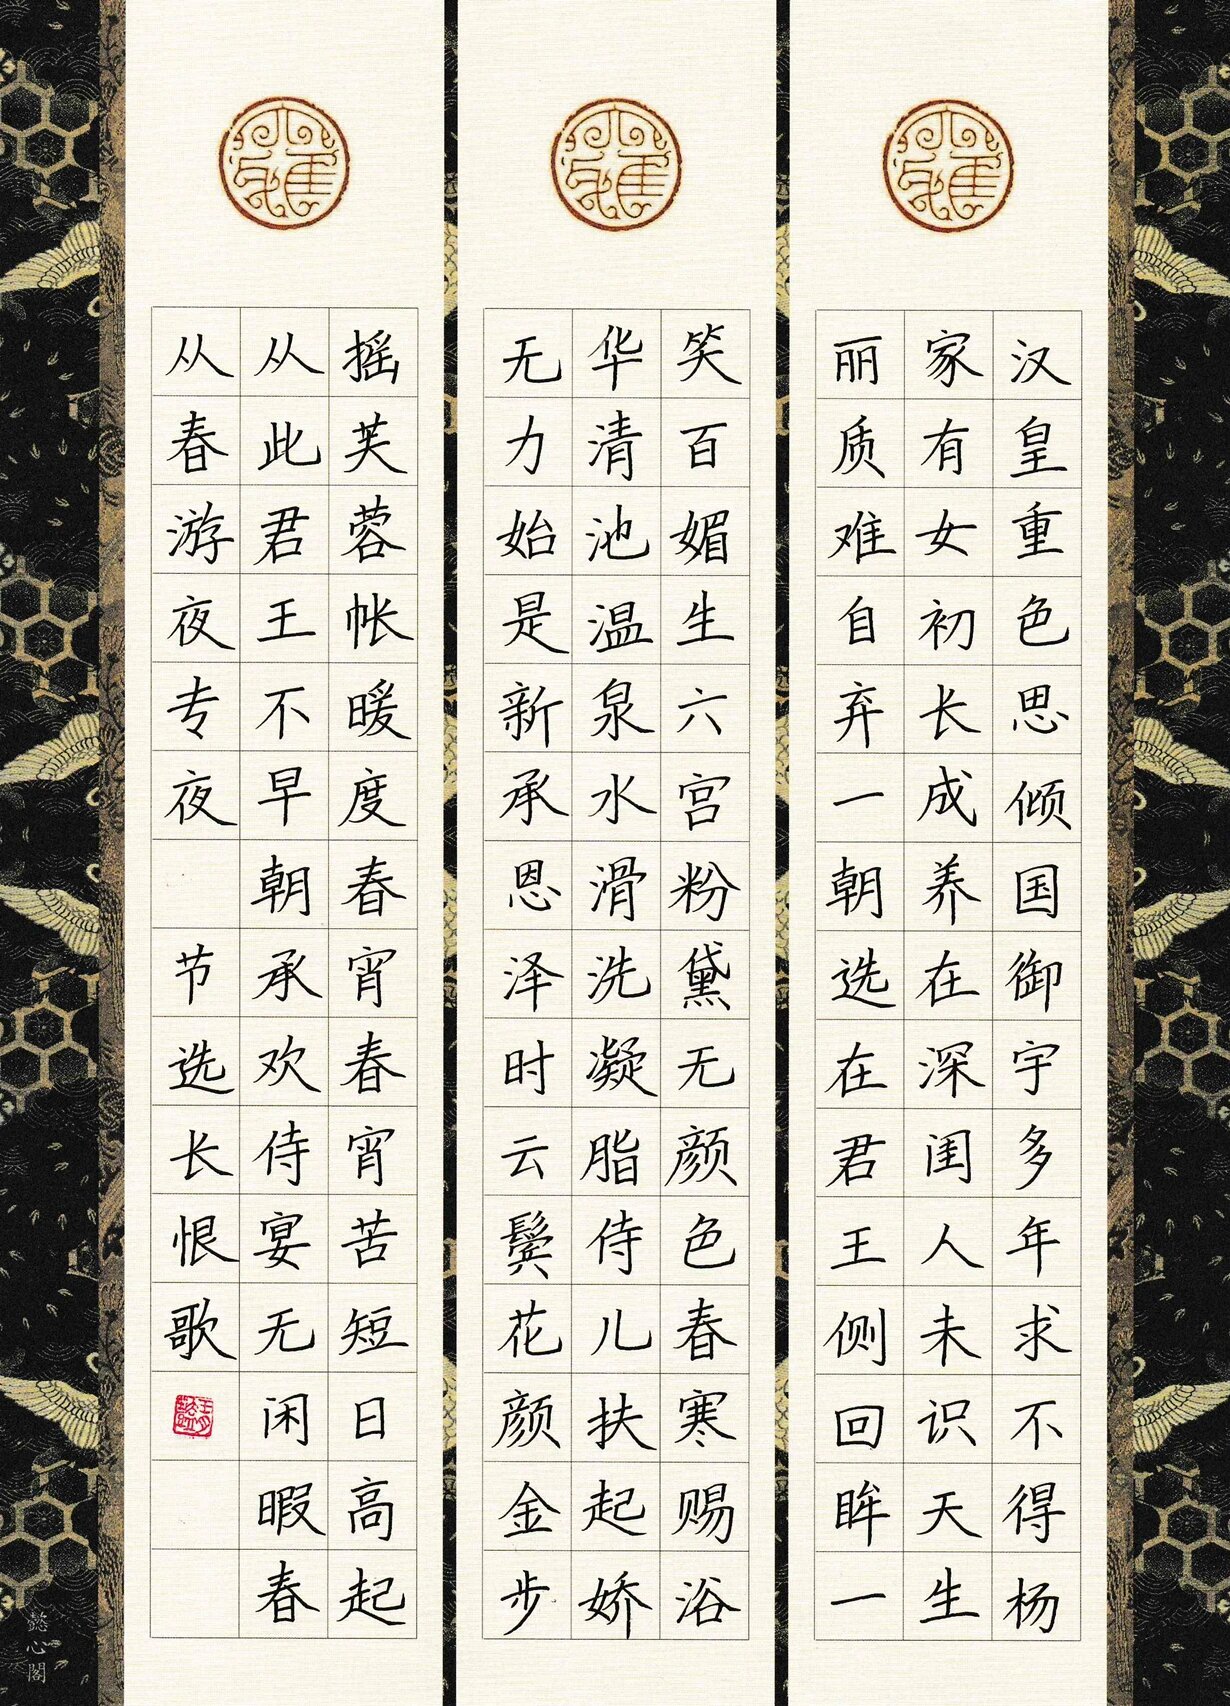 汉皇重色思倾国御宇多年求不得杨
家有女初长成养在深闺人未识天生
丽质难自弃一朝选在君王侧回眸一
笑百媚生六宫粉黛无颜色春寒赐浴
华清池温泉水滑洗凝脂侍儿扶起娇
无力始是新承恩泽时云鬓花颜金步
摇芙蓉帐暖度春宵春宵苦短日高起
从此君王不早朝承欢侍宴无闲暇春
从春游夜专夜 节选长恨歌
懿心阁